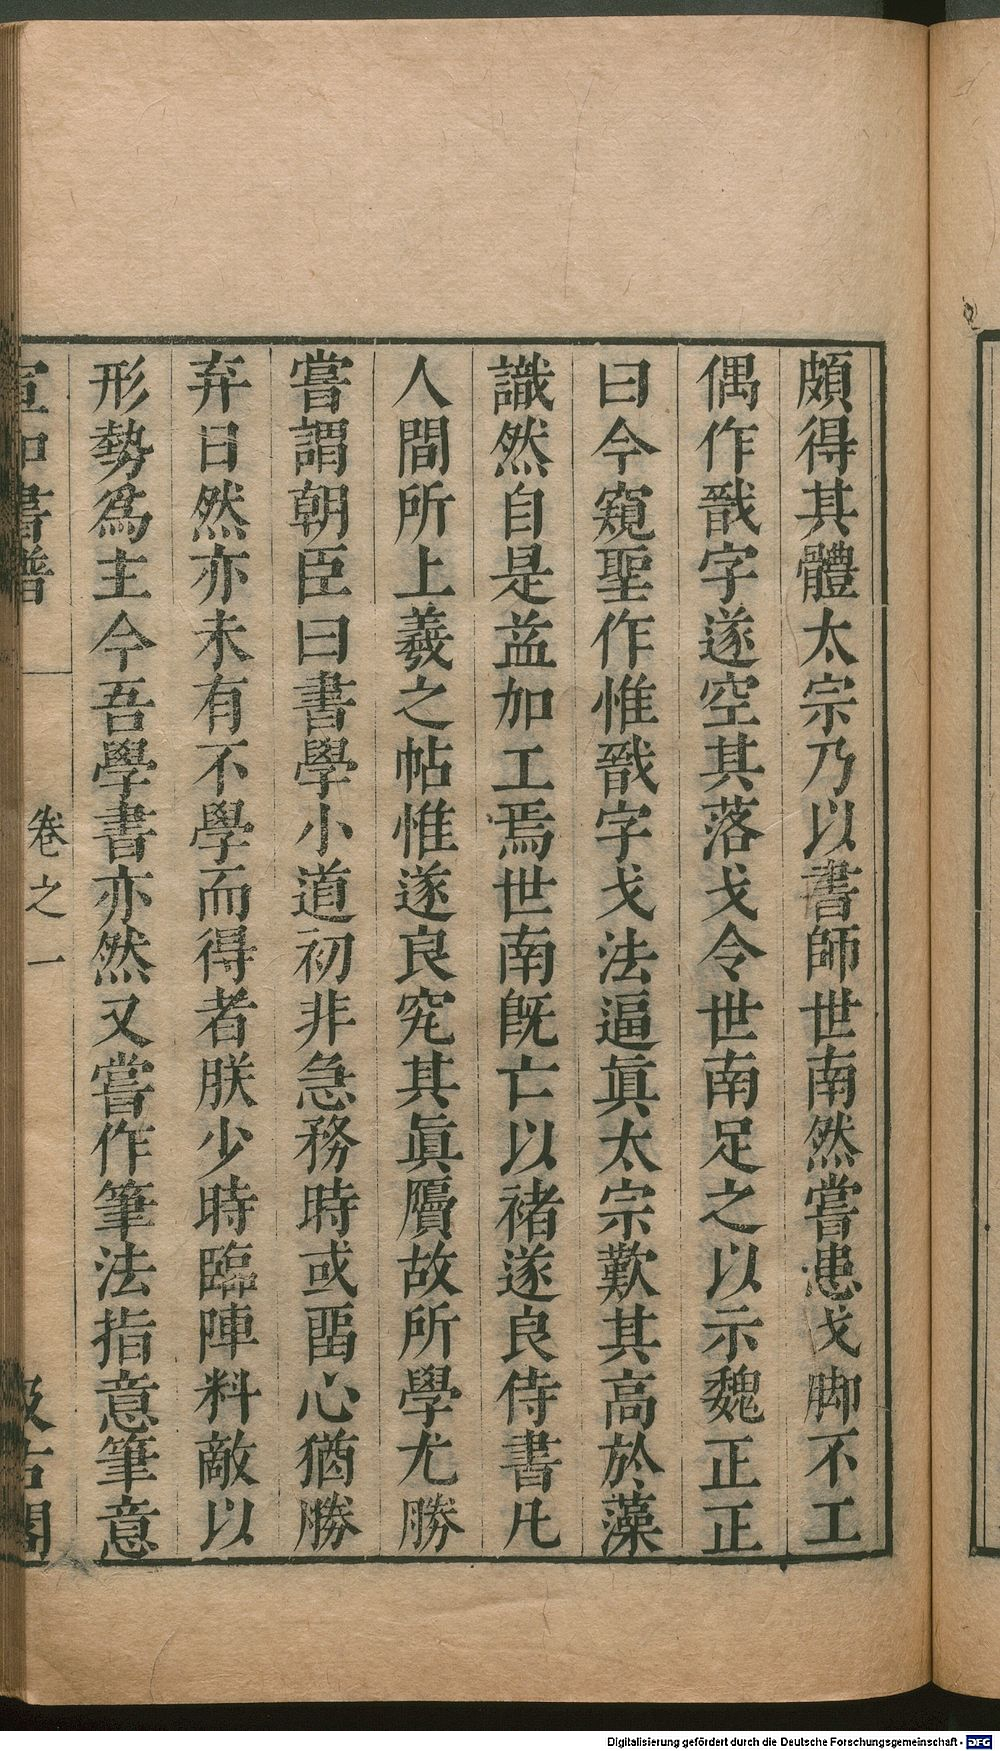 頗得其體太宗乃以書師世南然嘗患戈脚不工
偶作戩字遂空其落戈令世南足之以示魏正正
曰今窺聖作惟戩字戈法逼眞太宗歎其高於藻
識然自是益加工焉世南旣亡以褚遂良侍書凡
人間所上羲之帖惟遂良究其眞贗故所學尤勝
嘗謂朝臣曰書學小道初非急務時或畱心猶勝
弃日然亦未有不學而得者朕少時臨陣料敵以
形勢爲主今吾學書亦然又嘗作筆法指意筆意
宣和書譜 卷之一 汲古閣
Digitalisierung gefördert durch die Deutsche Forschungsgemeinschaft - DFG